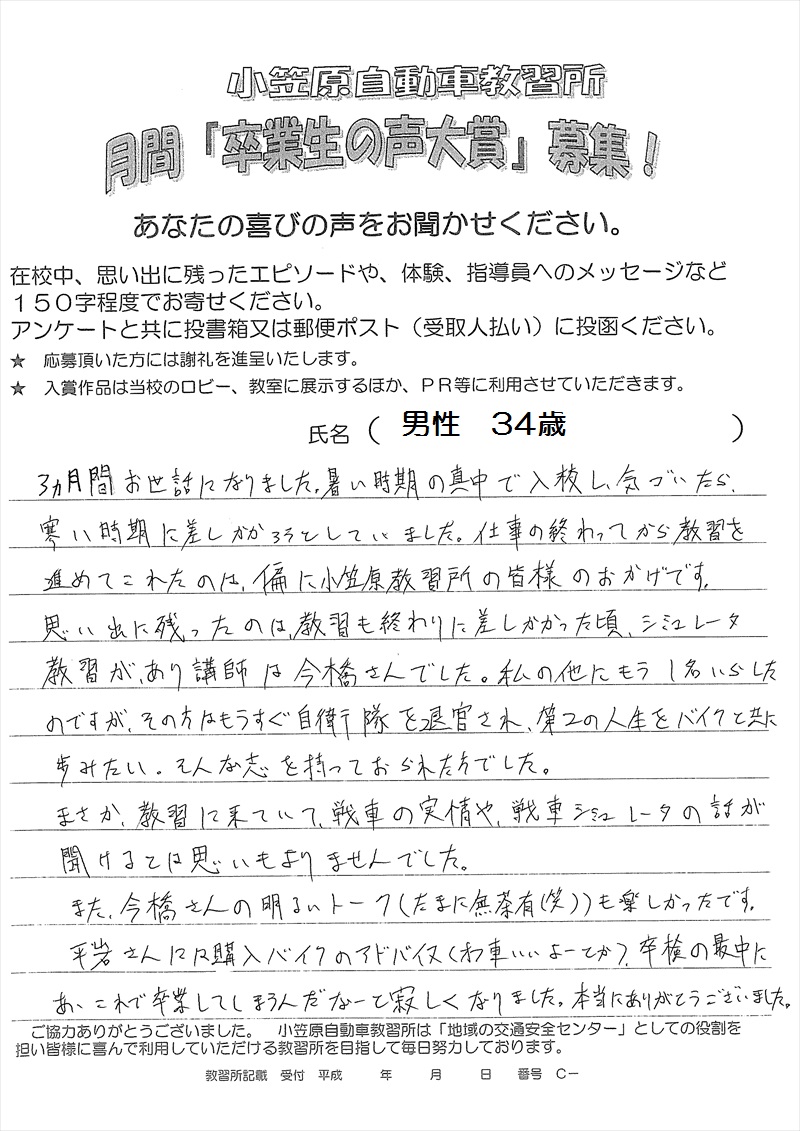 小笠原自動車教習所
月間「卒業生の声大賞」募集!
あなたの喜びの声をお聞かせください。
在校中、思い出に残ったエピソードや、体験、指導員へのメッセージなど
150字程度でお寄せください。
アンケートと共に投書箱又は郵便ポスト(受取人払い)に投函ください。
★ 応募頂いた方には謝礼を進呈いたします。
★ 入賞作品は当校のロビー、教室に展示するほか、PR等に利用させていただきます。
氏名 ( 男性 34歳 )
3ヵ月間お世話になりました。暑い時期の真中で入校し、気づいたら、
寒い時期に差しかかろうとしていました。仕事の終わってから教習を
進めてこれたのは、偏に小笠原教習所の皆様のおかげです。
思い出に残ったのは、教習も終わりに差しかかった頃、シミュレータ
教習が、あり講師は今橋さんでした。私の他にもう1名いらした
のですが、その方はもうすぐ自衛隊を退官され、第2の人生をバイクと共に
歩みたい。そんな志を持っておられた方でした。
まさか、教習に来ていて、戦車の実情や、戦車シミュレータの話が
聞けるとは思いもよりませんでした。
また、今橋さんの明るいトーク(たまに無茶有(笑))も楽しかったです。
平岩さんには購入バイクのアドバイス(わ車いいよーとか)、卒検の最中に
あ、これで卒業してしまうんだなーと寂しくなりました。本当にありがとうございました。
ご協力ありがとうございました。 小笠原自動車教習所は「地域の交通安全センター」としての役割を
担い皆様に喜んで利用していただける教習所を目指して毎日努力しております。
教習所記載 受付 平成 年 月 日 番号 C−